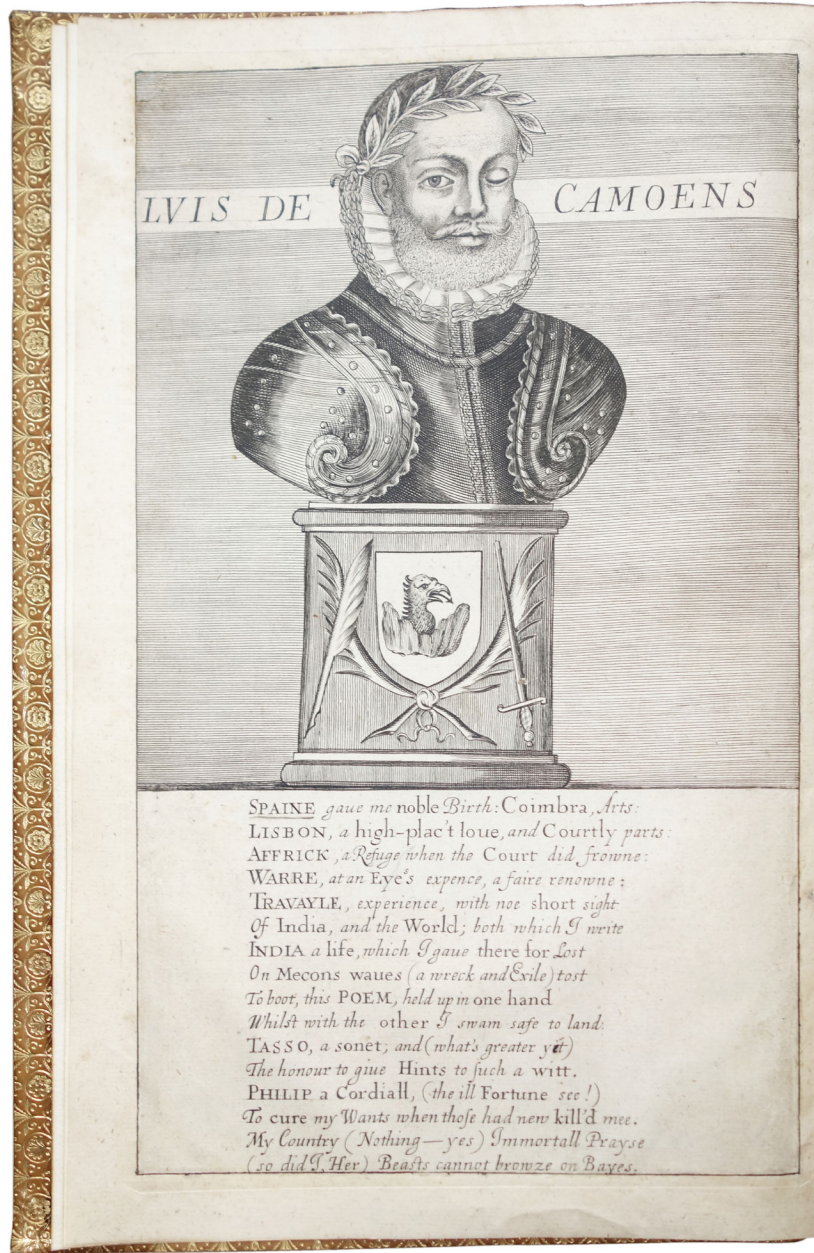 LVIS DE CAMOENS
SPAINE gaue me noble Birth: Coimbra, Arts:
LISBON, a high-plac't loue, and Courtly parts:
AFFRICK, a Refuge when the Court did frowne:
WARRE, at an Eye's expence, a faire renowne:
TRAVAYLE, experience, with noe short sight
Of India, and the World; both which I write
INDIA a life, which I gaue there for Lost
On Mecons waues (a wreck and Exile) tost
To boot, this POEM, held up in one hand
Whilst with the other I swam safe to land:
TASSO, a sonet; and (what's greater yet)
The honour to giue Hints to such a witt.
PHILIP a Cordiall, (the ill Fortune see!)
To cure my Wants when those had new kill'd mee.
My Country (Nothing—yes) Immortall Prayse
(so did I, Her) Beasts cannot browze on Bayes.